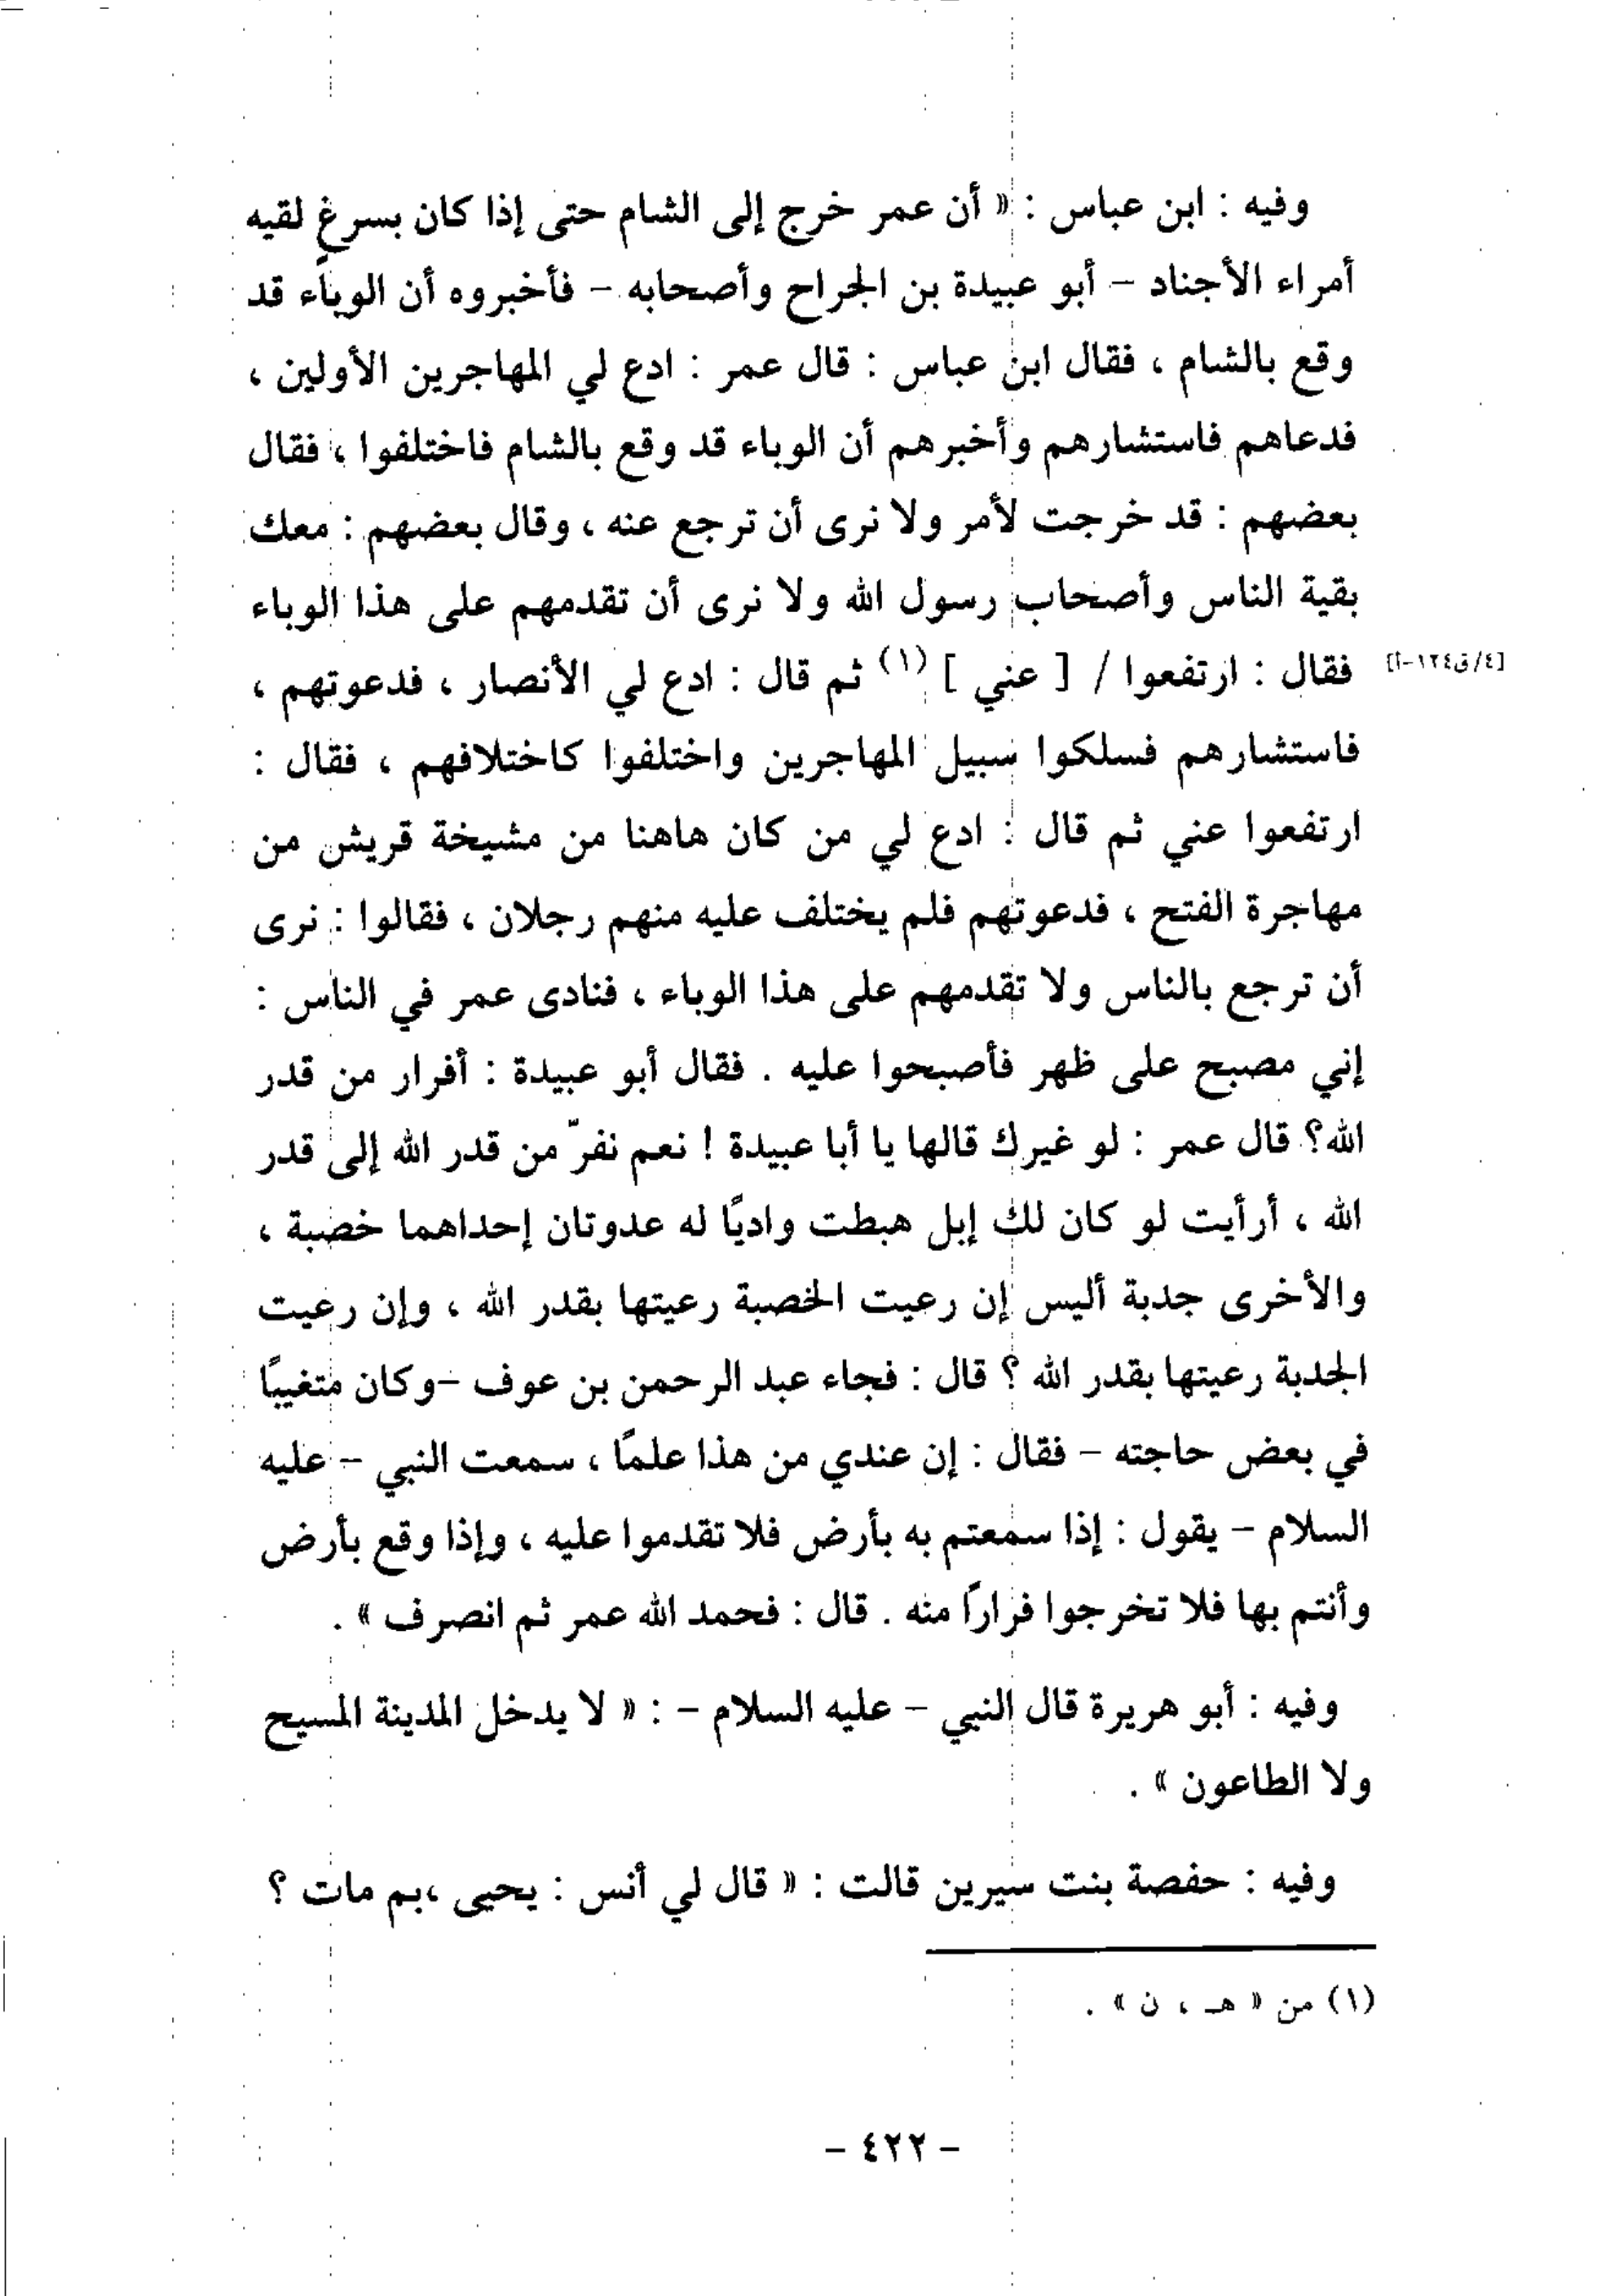 وفيه : ابن عباس : « أن عمر خرج إلى الشام حتى إذا كان بسرغٍ لقيه
أمراء الأجناد – أبو عبيدة بن الجراح وأصحابه – فأخبروه أن الوباء قد
وقع بالشام ، فقال ابن عباس : قال عمر : ادع لي المهاجرين الأولين ،
فدعاهم فاستشارهم وأخبرهم أن الوباء قد وقع بالشام فاختلفوا ، فقال
بعضهم : قد خرجت لأمر ولا نرى أن ترجع عنه ، وقال بعضهم : معك
بقية الناس وأصحاب رسول الله ولا نرى أن تقدمهم على هذا الوباء
فقال : ارتفعوا / [ عني ] (١) ثم قال : ادع لي الأنصار ، فدعوتهم ،
[٤/ق١٢٤-أ]
فاستشارهم فسلكوا سبيل المهاجرين واختلفوا كاختلافهم ، فقال :
ارتفعوا عني ثم قال : ادع لي من كان هاهنا من مشيخة قريش من
مهاجرة الفتح ، فدعوتهم فلم يختلف عليه منهم رجلان ، فقالوا : نرى
أن ترجع بالناس ولا تقدمهم على هذا الوباء ، فنادى عمر في الناس :
إني مصبح على ظهر فأصبحوا عليه . فقال أبو عبيدة : أفرار من قدر
الله؟ قال عمر : لو غيرك قالها يا أبا عبيدة ! نعم نفرّ من قدر الله إلى قدر
الله ، أرأيت لو كان لك إبل هبطت واديًا له عدوتان إحداهما خصبة ،
والأخرى جدبة أليس إن رعيت الخصبة رعيتها بقدر الله ، وإن رعيت
الجدبة رعيتها بقدر الله ؟ قال : فجاء عبد الرحمن بن عوف –وكان متغيبًا
في بعض حاجته – فقال : إن عندي من هذا علمًا ، سمعت النبي – عليه
السلام – يقول : إذا سمعتم به بأرض فلا تقدموا عليه ، وإذا وقع بأرض
وأنتم بها فلا تخرجوا فرارًا منه . قال : فحمد الله عمر ثم انصرف » .
وفيه : أبو هريرة قال النبي – عليه السلام – : « لا يدخل المدينة المسيح
ولا الطاعون » .
وفيه : حفصة بنت سيرين قالت : « قال لي أنس : يحيى ،بم مات ؟
(١) من « هـ ، ن » .
– ٤٢٢ –